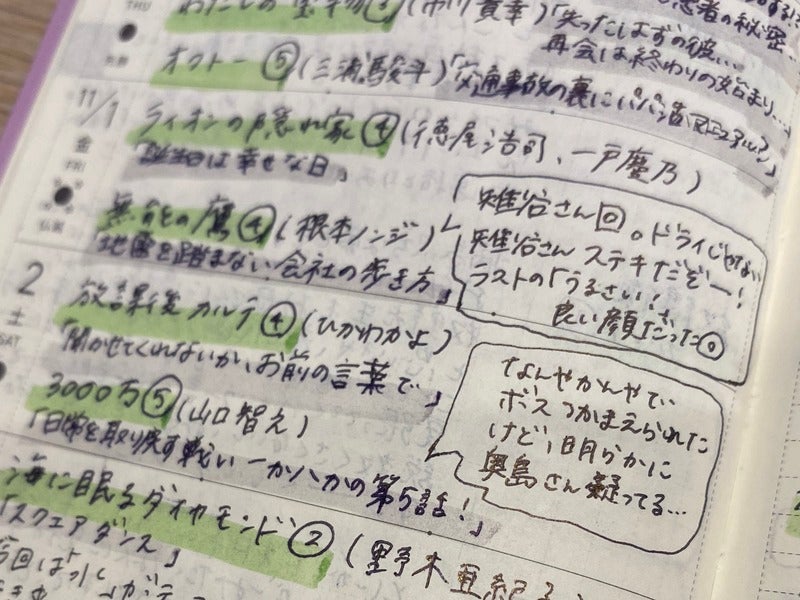 THU
わたしの宝物③(市川貴幸)「失ったはずの彼…
再会は終わりの始まり…」
患者の秘密…
オクトー⑤(三浦駿斗)「交通事故の裏にパパ活マニュアル?」
11/1
金
FRI
仏滅
ライオンの隠れ家④(徳尾浩司、一戸慶乃)
「誕生日は幸せな日」
無能の鷹④(根本ノンジ)
「地雷を踏まない会社の歩き方」
雉谷さん回。ドライじゃない
雉谷さんステキだぞー!
ラストの「うるさい!」
良い顔だった。
2
土
SAT
放課後カルテ④(ひかわかよ)
「聞かせてくれないか、お前の言葉で」
3000万⑤(山口智之)
「日常を取り戻す戦い 一か八かの第5話!」
なんやかんやで
ボスつかまえられた
けど、明らかに
奥島さん疑ってる…
海に眠るダイヤモンド②(野木亜紀子)
「スクエアダンス」
今回は